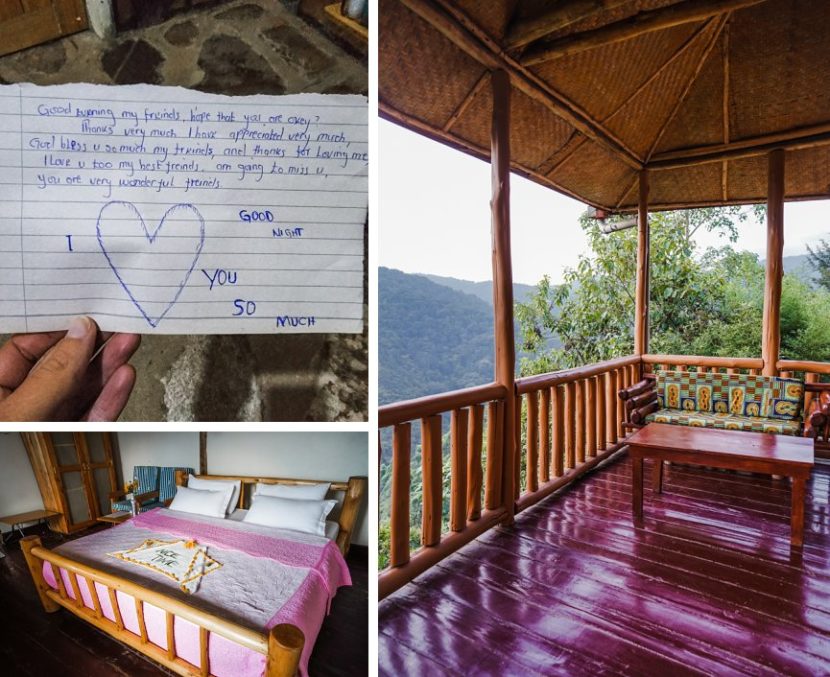 Good evening my freinds, hope that you are okey?
Thanks very much I have appreciated very much,
God bless u so much my freinds, and thanks for loving me
I love u too my best freinds, am going to miss u,
You are very wonderful freinds.
GOOD
NIGHT
I
YOU
SO
MUCH
NICE
TIME